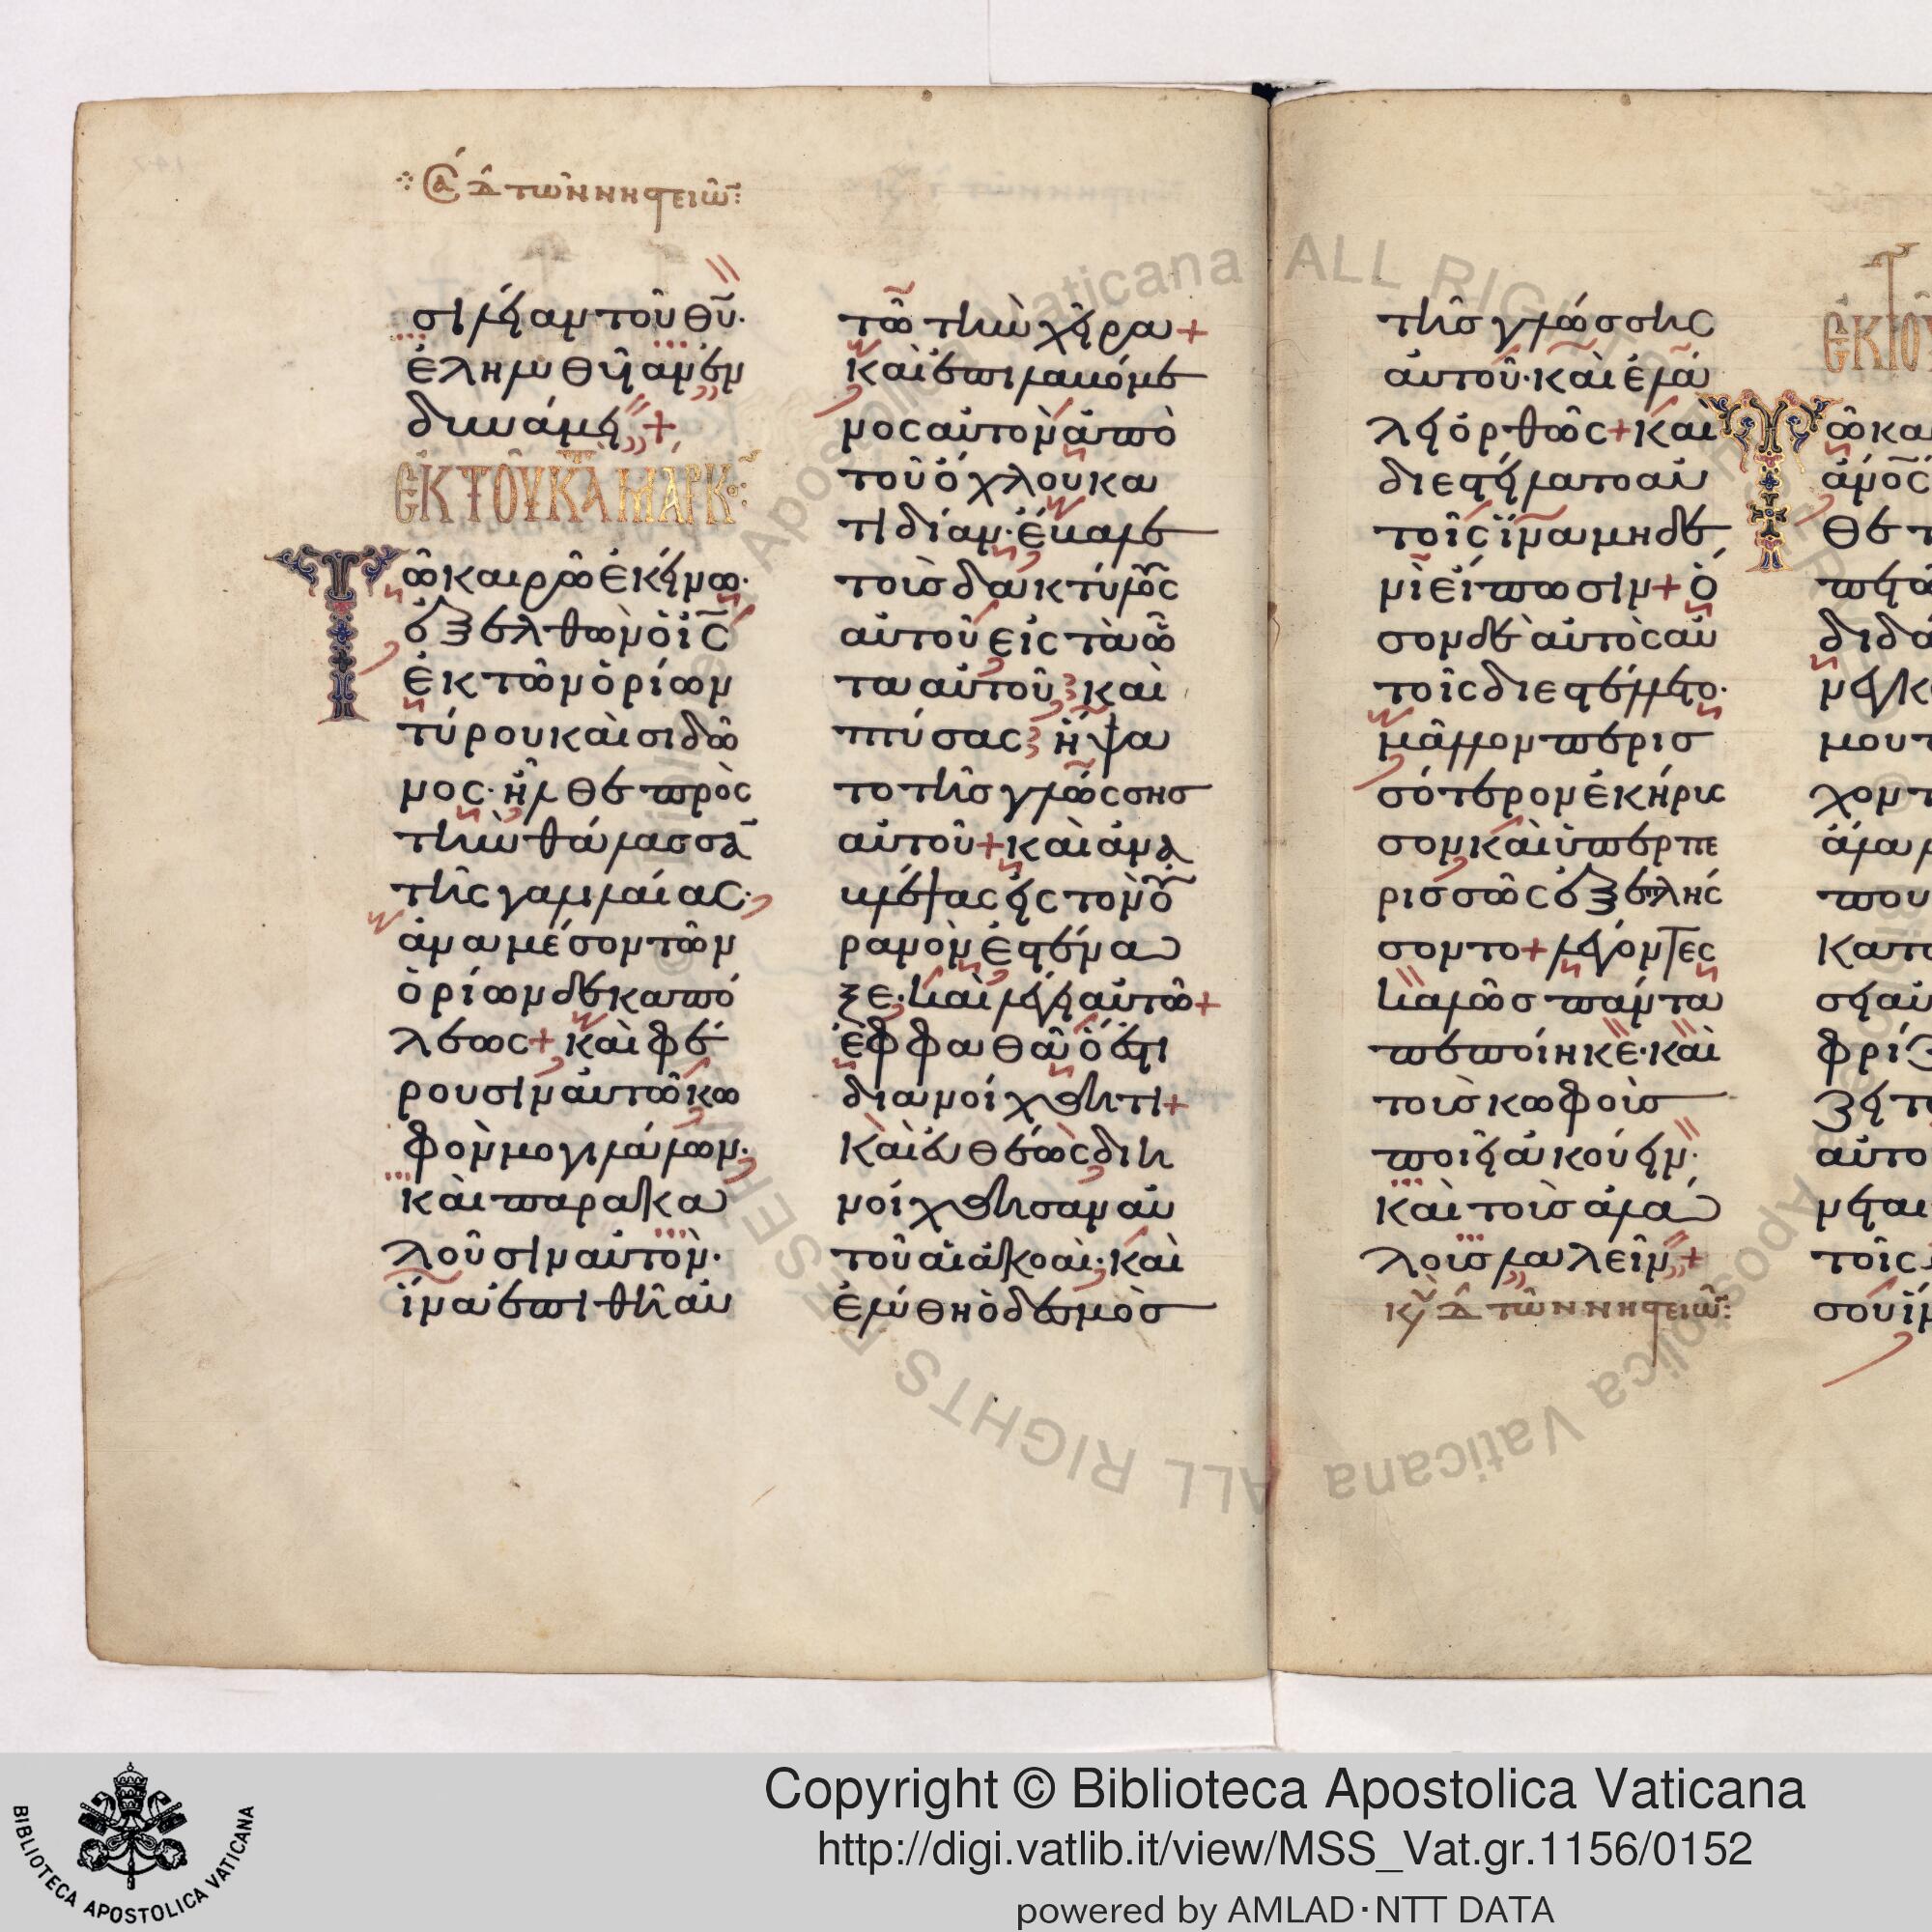 Σα Δ τῶν νηστειῶν
σιλείαν τοῦ θυ·
ἐληλυθυῖαν ἐν
δυνάμει+
ἐκ τοῦ κατὰ μαρκ
Τῶ καιρῶ ἐκείνω·
ἐξελθὼν ὁ ις
ἐκ τῶν ὁρίων
τύρου καὶ σιδῶ
νος· ἦλθε πρὸς
τὴν θάλασσα
τῆς γαλιλαίας·
ἀνα μέσον τῶν
ὁρίων δεκαπό
λεως+ καὶ φέ
ρουσιν αὐτῶ κω
φὸν μογιλάλων·
καὶ παρακα
λοῦσιν αὐτὸν·
ἵνα ἐπιθῆ αὐ
τῶ τὴν χεῖρα+
καὶ ἐπιλαβόμε
νος αὐτὸν ἀπὸ
τοῦ ὄχλου κα
τιδίαν· ἔβαλε
τοὺς δακτύλους
αὐτοῦ εἰς τὰ ὦ
τα αὐτοῦ καὶ
πτύσας ἥψα
το τῆς γλώσσης
αὐτοῦ+ καὶ ἀνα
βλέψας εἰς τὸν οὐ
ρανὸν ἐστένα
ξε· καὶ λέγει αὐτῶ+
ἐφφαθα ὅ ἐστι
διανοίχθητι+
Καὶ εὐθέως διη
νοίχθησαν αὐ
τοῦ αἱ ἀκοαὶ· καὶ
ἐλύθη ὁ δεσμὸς
τῆς γλώσσης
αὐτοῦ· καὶ ἐλά
λει ὀρθῶς+ καὶ
διεστείλατο αὐ
τοῖς ἵνα μηδε
νὶ εἴπωσιν+ ὅ
σον δὲ αὐτὸς αὐ
τοῖς διεστέλλετο·
μᾶλλον περισ
σότερον ἐκήρυσ
σον καὶ ὑπερπε
ρισσῶς ἐξεπλήσ
σοντο+ λέγοντες
καλῶς πάντα
πεποίηκε· καὶ
τοὺς κωφοὺς
ποιεῖ ἀκούειν·
καὶ τοὺς ἀλά
λους λαλεῖν+
κυ Δ τῶν νηστειῶν
ἐκ τοῦ
Τῶ και
ἄνος
θε τ
πεσ
διδά
νει κ
μου τ
χον τ
ἄλαλ
που
κατα
σει αὐ
φρίζ
ζει τ
αὐτο
νεαι
τοῖς
σου ἵν
ALL RIGHTS RESERVED
© Biblioteca Apostolica Vaticana
BIBLIOTECA APOSTOLICA VATICANA
Copyright © Biblioteca Apostolica Vaticana
http://digi.vatlib.it/view/MSS_Vat.gr.1156/0152
powered by AMLAD·NTT DATA